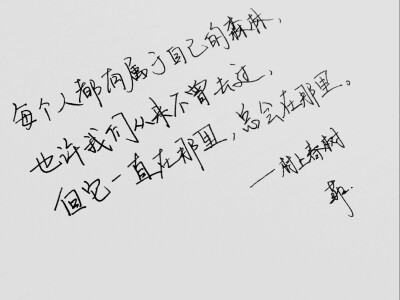 每个人都有属于自己的森林，
也许我们从来不曾去过，
但它一直在那里，总会在那里。
——村上春树